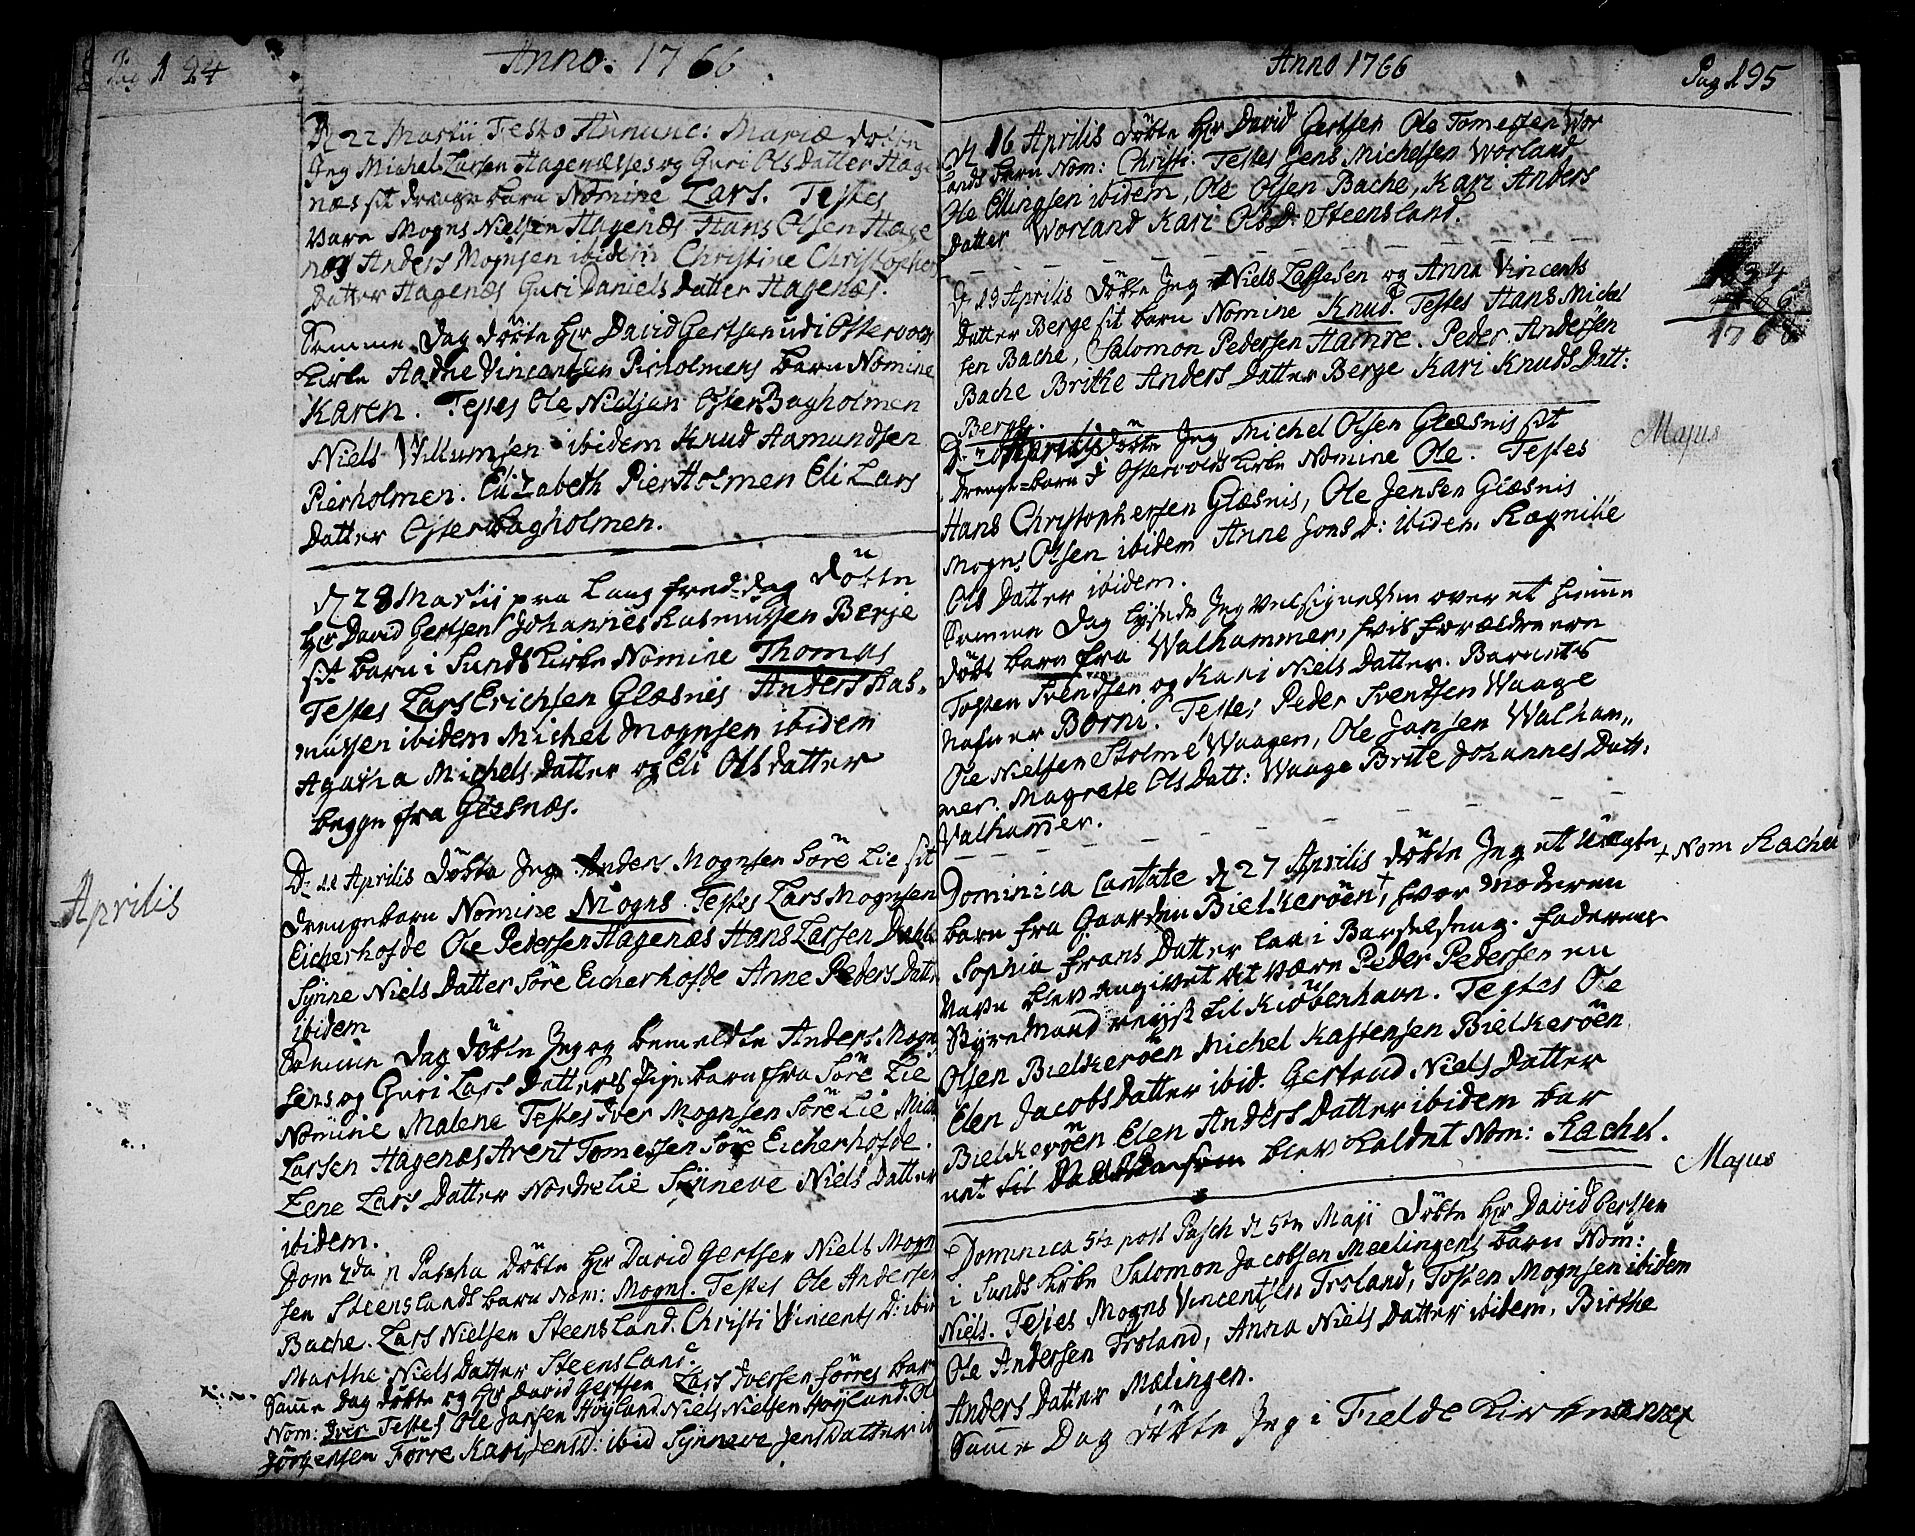 Pag 194
Anno. 1766
D 22 Martii Festo Annunc: Mariæ døbte
Jeg Michel Larsen Hagenæsses og Guri Ols Datter Hage
næs sit drenge barn Nomine Lars. Testes
vare Mogns Nielsen Hagenæs Hans Olsen Hage
næs Anders Mognsen ibidem Christine Christopher
Datter Hagenæs Guri Daniels Datter Hagenæs.
Samme Dag døbte Hr David Gertsen udi Ostervolds
Kirke Aadne Vincentsen Pirholmens barn Nomine
Karen. Testes Ole Nielsen Øster Bagholmen
Niels Villumsen ibidem Knud Aamundsen
Pierholmen. Elizabeth PierHolmen Eli Lars
Datter Øster Bagholmen.
D 28 Martii paa Lang fredag døbte
Hr David Gertsen Johannes Rasmussen Berge
sit barn i Sunds Kirke Nomine Thomas
Testes Lars Erichsen Glæsnes Anders Ras-
mussen ibidem Michel Mognsen ibidem
Agatha Michels datter og Eli Ols datter
begge fra Glesnæs.
Aprilis
D: 11 Aprilis døbte Jeg Anders Mognsen Søre Lie sit
drengebarn Nomine Mogns. Testes Lars Mognsen
Eicherhofde Ole Pedersen Hagenæs Hans Larsen Dahle
Synne Niels Datter Søre Eicherhofde Anne Peders Datter
ibidem
Samme Dag døbte Jeg og bemeldte Anders Mogn
sens og Guri Lars Datters Pigebarn fra Søre Lie
Nomine Malene Testes Iver Mognsen Søre Lie Mich
Larsen Hagenæs Arent Tomessen Søre Eicherhofde.
Lene Lars Datter Nordre Lie Synneve Niels Datter
ibidem.
Dom 2da p Pascha døbte Hr David Gertsen Niels Mogn
sen Steenslands barn Nom: Mogns. Testes Ole Andersen
Bache. Lars Nielsen Steensland. Christi Vincents D: ibid
Marthe Niels Datter Steensland.
Samme Dag døbte og Hr David Gertsen Lars Iversen Førres bar
Nom: Iver Testes Ole Jansen Høyland Niels Nielsen Høyland. Ol
Jørgensen Førre Kari Jens D: ibid Synneve Jens datter ib
Anno 1766
Pag 195
D 16 Aprilis døbte Hr David Gertsen Ole Tomessen Wor
lands barn Nom: Christi. Testes Jens Michelsen Worland
Ole Ellingsen ibidem, Ole Olsen Bache, Kari Anders
Datter Worland Kari Ols D: Steensland.
D 19 Aprilis døbte Jeg Niels Lassesen og Anna Vincents
Datter Berge sit barn Nomine Knud. Testes Hans Michel
sen Bache, Salomon Pedersen Hamre. Peder Andersen
Bache Brithe Anders Datter Berge Kari Knuds Datt:
Berge.
1766
Majus
Aprilis døbte Jeg Michel Olsen Glæsnis sit
Drenge-barn i Ostervolds Kirke Nomine Ole. Testes
Hans Christophersen Glæsnis, Ole Jensen Glæsnis
Mogns Olsen ibidem Anne Jons D: ibidem. Ragnilie
Ols Datter ibidem.
Samme Dag lyste Jeg Velsignelsen over et hiemme
døbt barn fra Walhammer, hvis forældre ere
Tosten Svendsen og Kari Niels Datter. Barnets
Nafn er Børni. Testes Peder Svendsen Waage
Ole Nielsen Stolme Waagen, Ole Jansen Walham-
mer. Magrete Ols Datt: Waage Brite Johannes Datt:
Valhammer.
Dominica Cantate d 27 Aprilis døbte Jeg et Uægte + Nom Rachel
barn fra Gaarden Bielkerøen +, hvor Moderen
Sophia Frans Datter laa i Barselseng. Faderens
Navn blev angivet at være Peder Pedersen en
Styre Mand reyst til Kiøbenhavn. Testes Ole
Olsen Bielkerøen Michel Kastensen Bielkerøen
Elen Jacobs Datter ibid. Gertrud Niels Datter
Bielkerøen Elen Anders Datter ibidem bar
net til Daaben som blev kaldet Nom: Rachel.
Majus
Dominica 5te post Pasch d 5te Maji døbte Hr David Gertsen
i Sunds Kirke Salomon Jacobsen Meelingens barn Nom:
Niels. Testes Mogns Vincentsen Troland, Tosten Mognsen ibidem
Ole Andersen Troland, Anna Niels Datter ibidem, Birthe
Anders Datter Mælingen.
Samme Dag døbte Jeg i Tielde Kirke annex